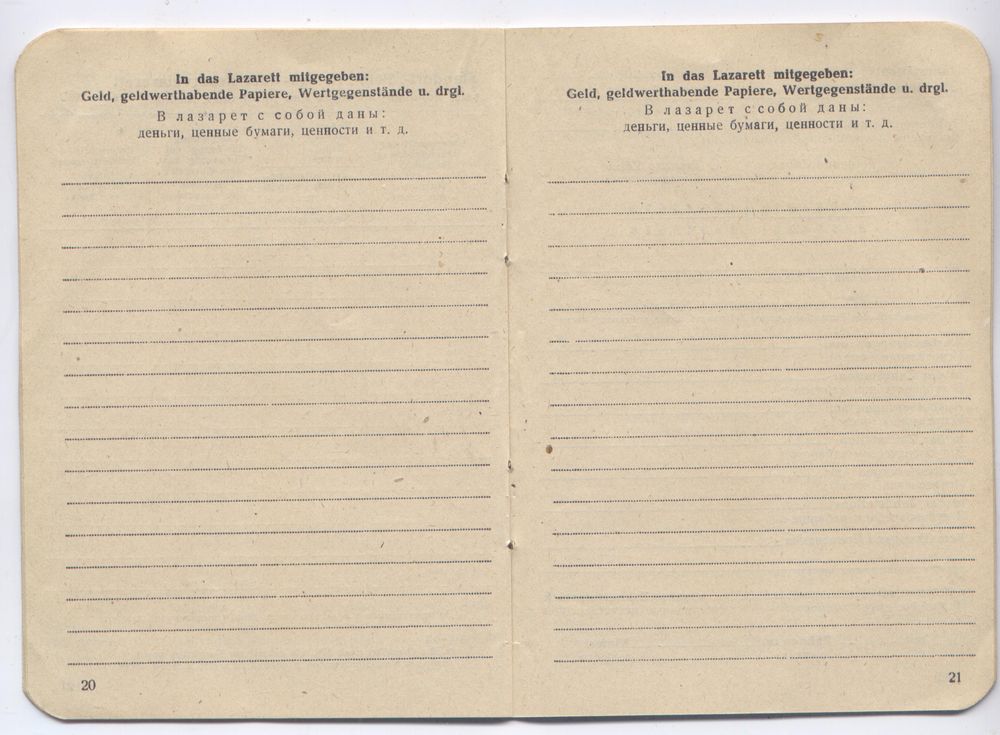 In das Lazarett mitgegeben:
Geld, geldwerthabende Papiere, Wertgegenstände u. drgl.
В лазарет с собой даны:
деньги, ценные бумаги, ценности и т. д.
20
In das Lazarett mitgegeben:
Geld, geldwerthabende Papiere, Wertgegenstände u. drgl.
В лазарет с собой даны:
деньги, ценные бумаги, ценности и т. д.
21